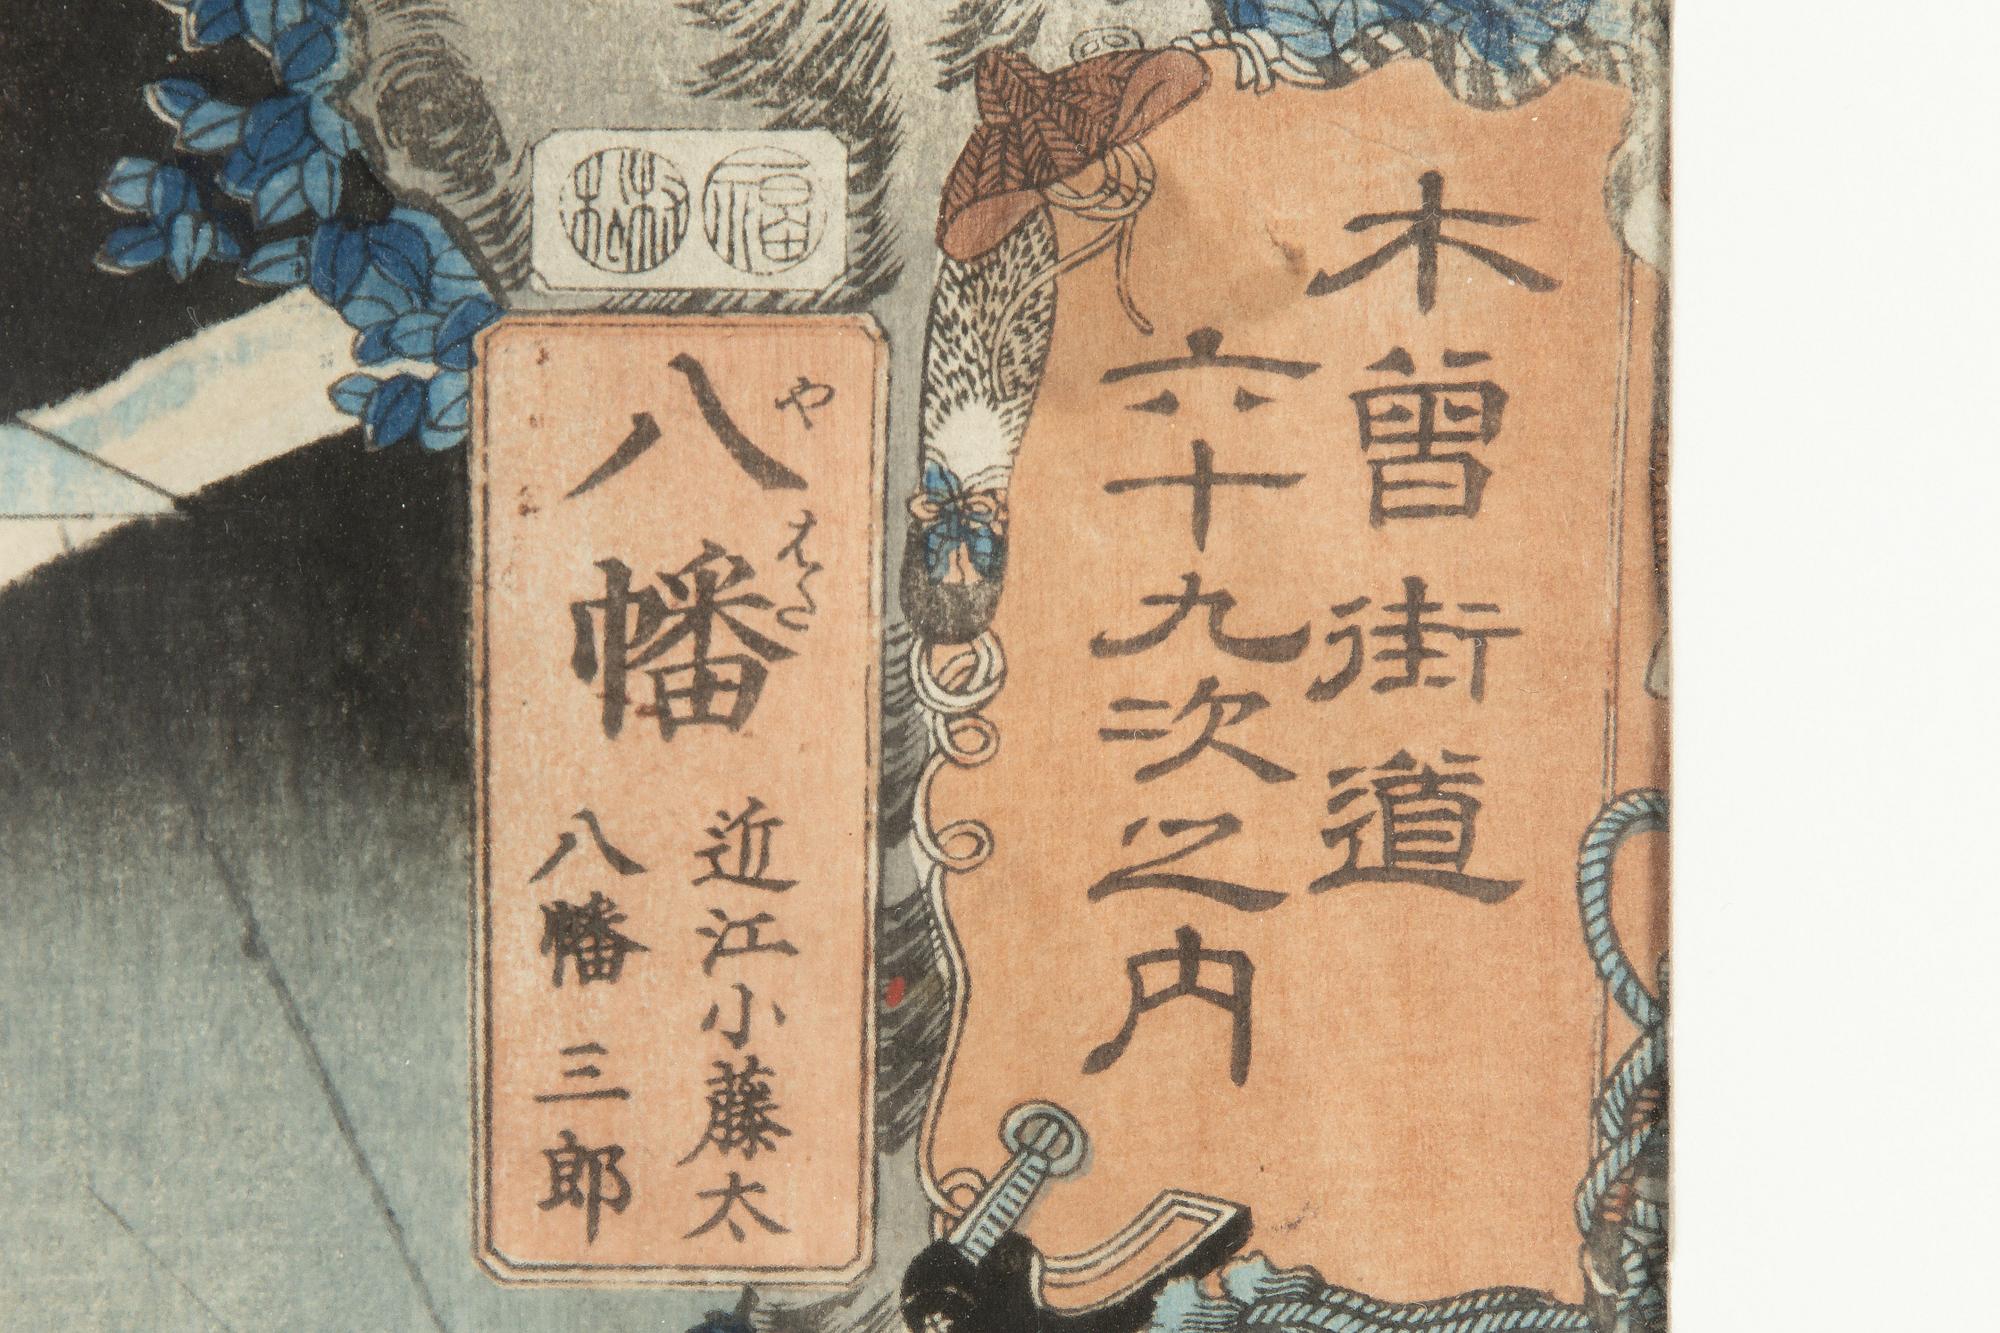 木曽街道
六十九次之内
福
村松
八幡
やはた
近江小藤太
八幡三郎